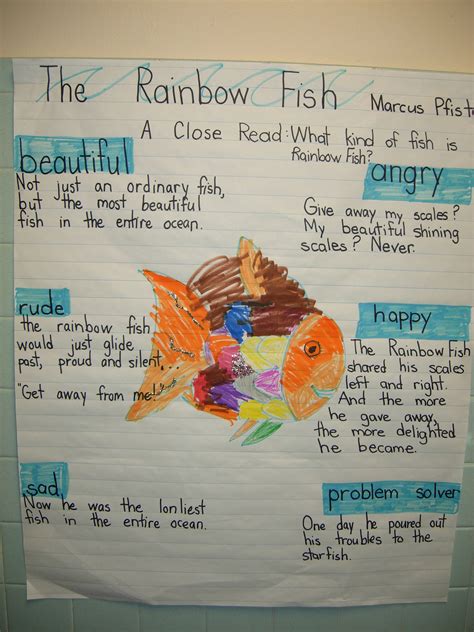 The Rainbow Fish
Marcus Pfiste
A Close Read: What kind of fish is
Rainbow Fish?
beautiful
Not just an ordinary fish,
but the most beautiful
fish in the entire ocean.
angry
Give away my scales?
My beautiful shining
scales? Never.
rude
the rainbow fish
would just glide
past, proud and silent...
"Get away from me!
happy
The Rainbow Fish
shared his scales
left and right.
And the more
he gave away,
the more delighted
he became.
sad
Now he was the lonliest
fish in the entire ocean.
problem solver
One day he poured out
his troubles to the
starfish.